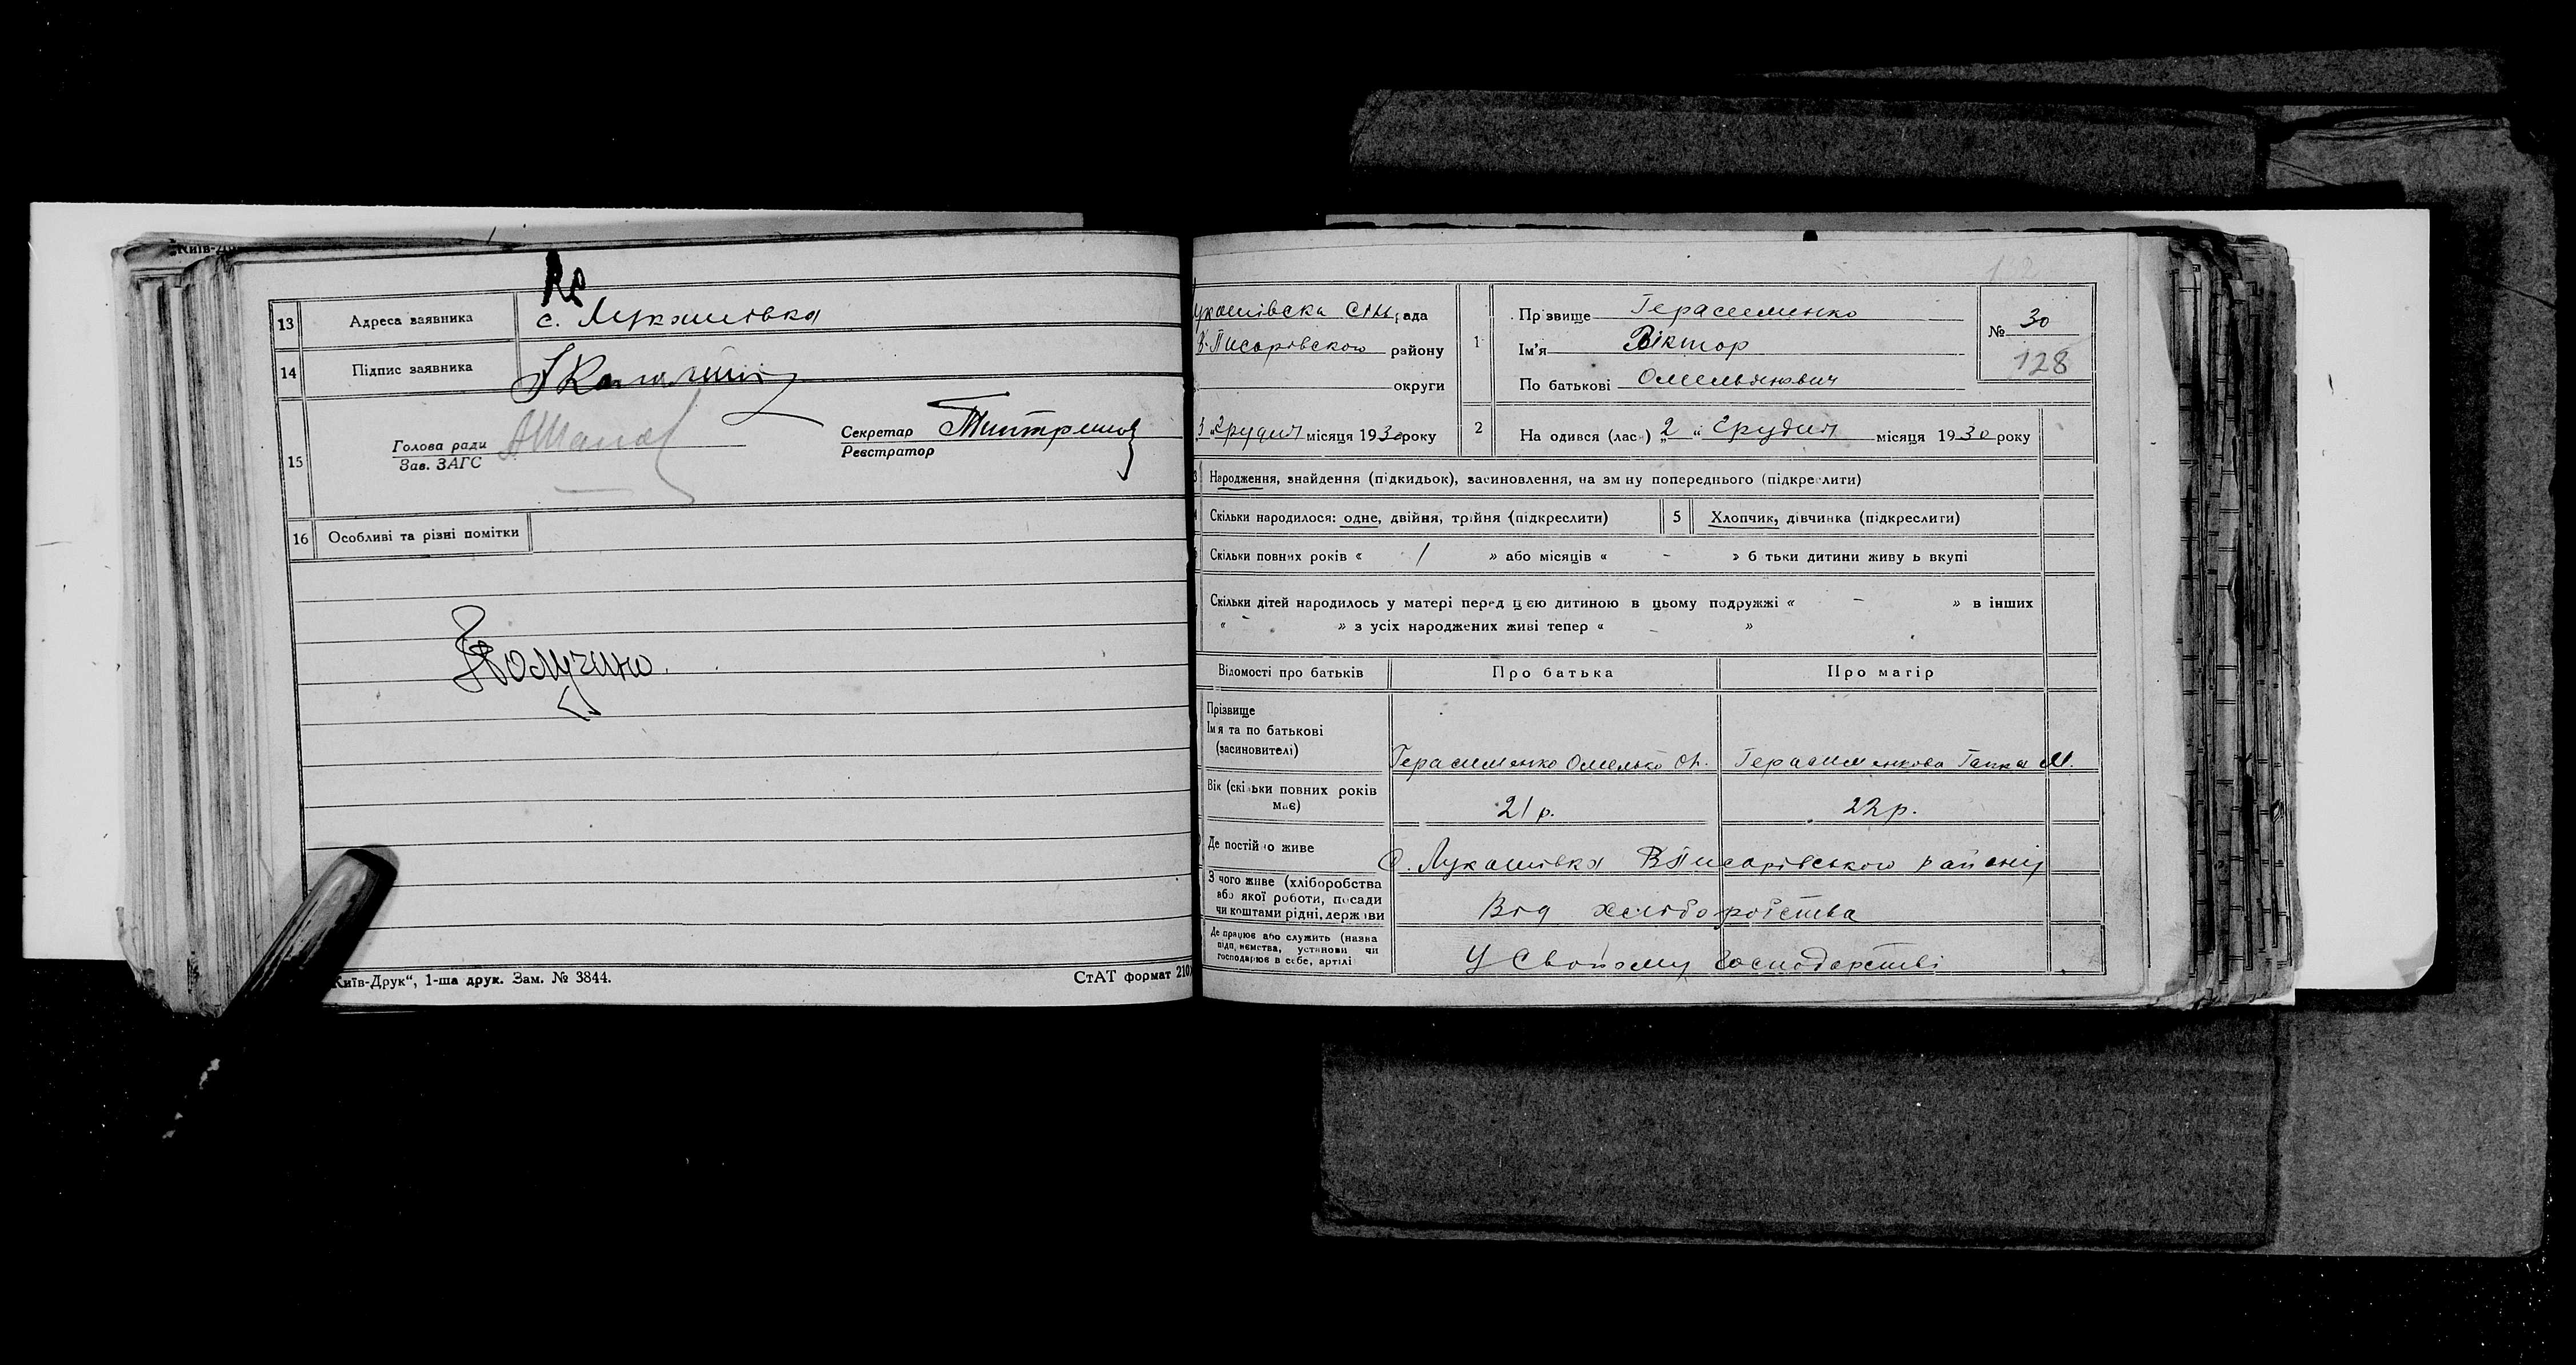 Київ-Др
13 Адреса заявника с. Лукашівка
14 Підпис заявника
15 Голова ради
Зав. ЗАГС
Секретар
Реєстратор
16 Особливі та різні помітки
Получено.
Київ-Друк“, 1-ша друк. Зам. № 3844.
СтАТ формат 210
укашівска сіль рада
В-Писарівского району
округи
3 „ Грудня місяця 1930 року
1 Прізвище Герасименко
Ім'я Віктор
По батькові Омельянович
№ 30
128
2 На одився (лась) „2 “ Грудня місяця 1930 року
3 Народження, знайдення (підкидьок), засиновлення, на зміну попереднього (підкреслити)
Скільки народилося: одне, двійня, трійня (підкреслити)
5 Хлопчик, дівчинка (підкреслити)
Скільки повних років « 1 » або місяців « - » б тьки дитини живу ь вкупі
Скільки дітей народилось у матері перед цією дитиною в цьому подружжі « - » в інших
« - » з усіх народжених живі тепер « - »
Відомості про батьків Про батька Про матір
Прізвище
Ім'я та по батькові
(засиновителі)
Герасименко Омелько Ол. Герасименкова Ганна М.
Вік (скільки повних років
має)
21 р. 22 р.
Де постійно живе
С. Лукашівка В Писарівського району
З чого живе (хліборобства
або якої роботи, посади
чи коштами рідні, держави
Від хліборобства
Де працює або служить (назва
підприємства, установи чи
господарює в себе, артілі
У своєму господарстві